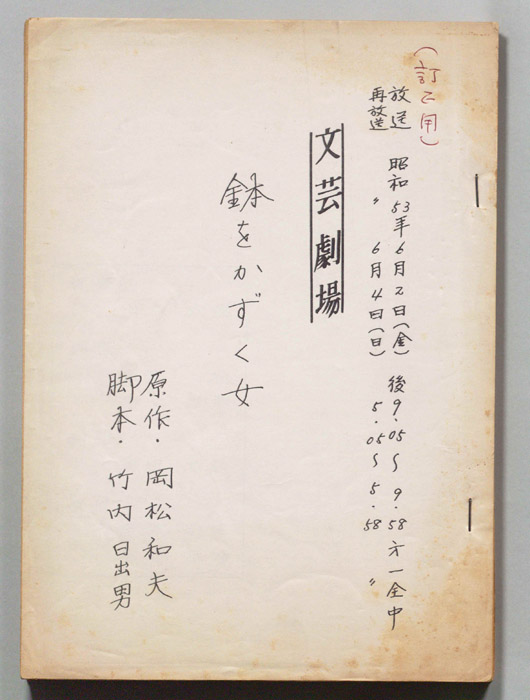 (訂正用)
放送 昭和53年6月2日(金) 後9.05〜9.58 オ一全中
再放送 〃 6月4日(日) 5.05〜5.58 〃
文芸劇場
鉢をかずく女
原作・岡松和夫
脚本・竹内日出男